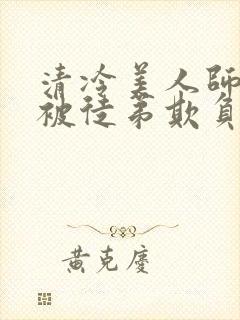 清冷美人師
被徒弟欺負
黄克慶